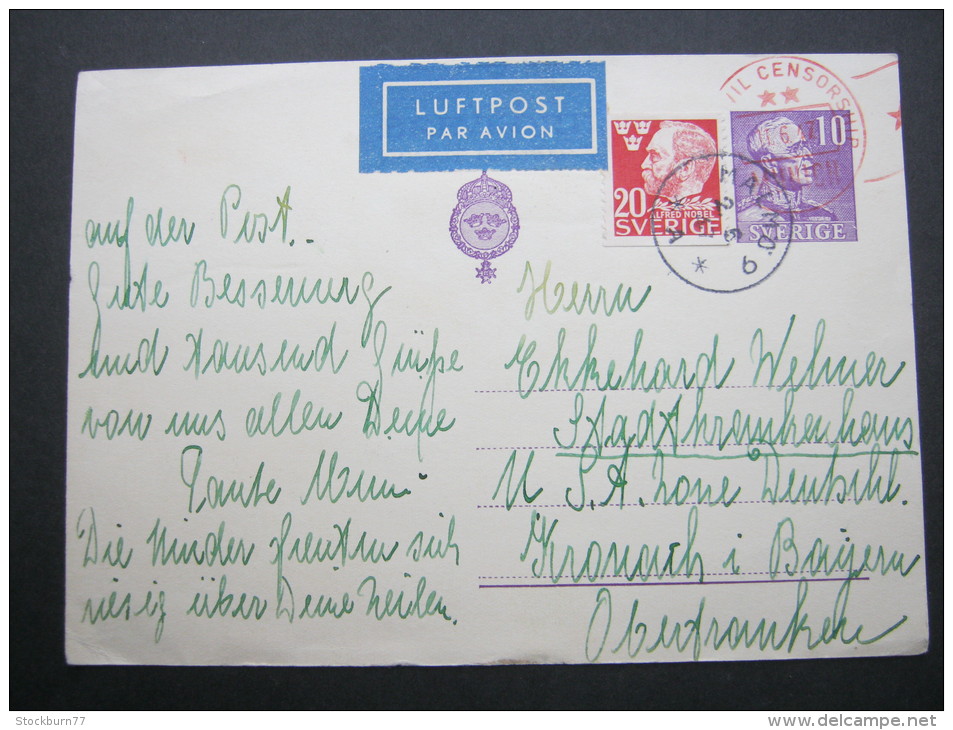 LUFTPOST
PAR AVION
20
ALFRED NOBEL
SVERIGE
10
SVERIGE
CENSORSHIP
6
auf der Post..
Gute Besserung
und tausend Grüße
von uns allen Deine
Tante
Die Kinder freuten sich
riesig über Deine Zeilen.
Herrn
Ekkehard Welmer
Stadtkrankenhaus
U.S.A. Zone Deutschl.
Kronach i Bayern
Oberfranken
Stockburn77
delcampe.net